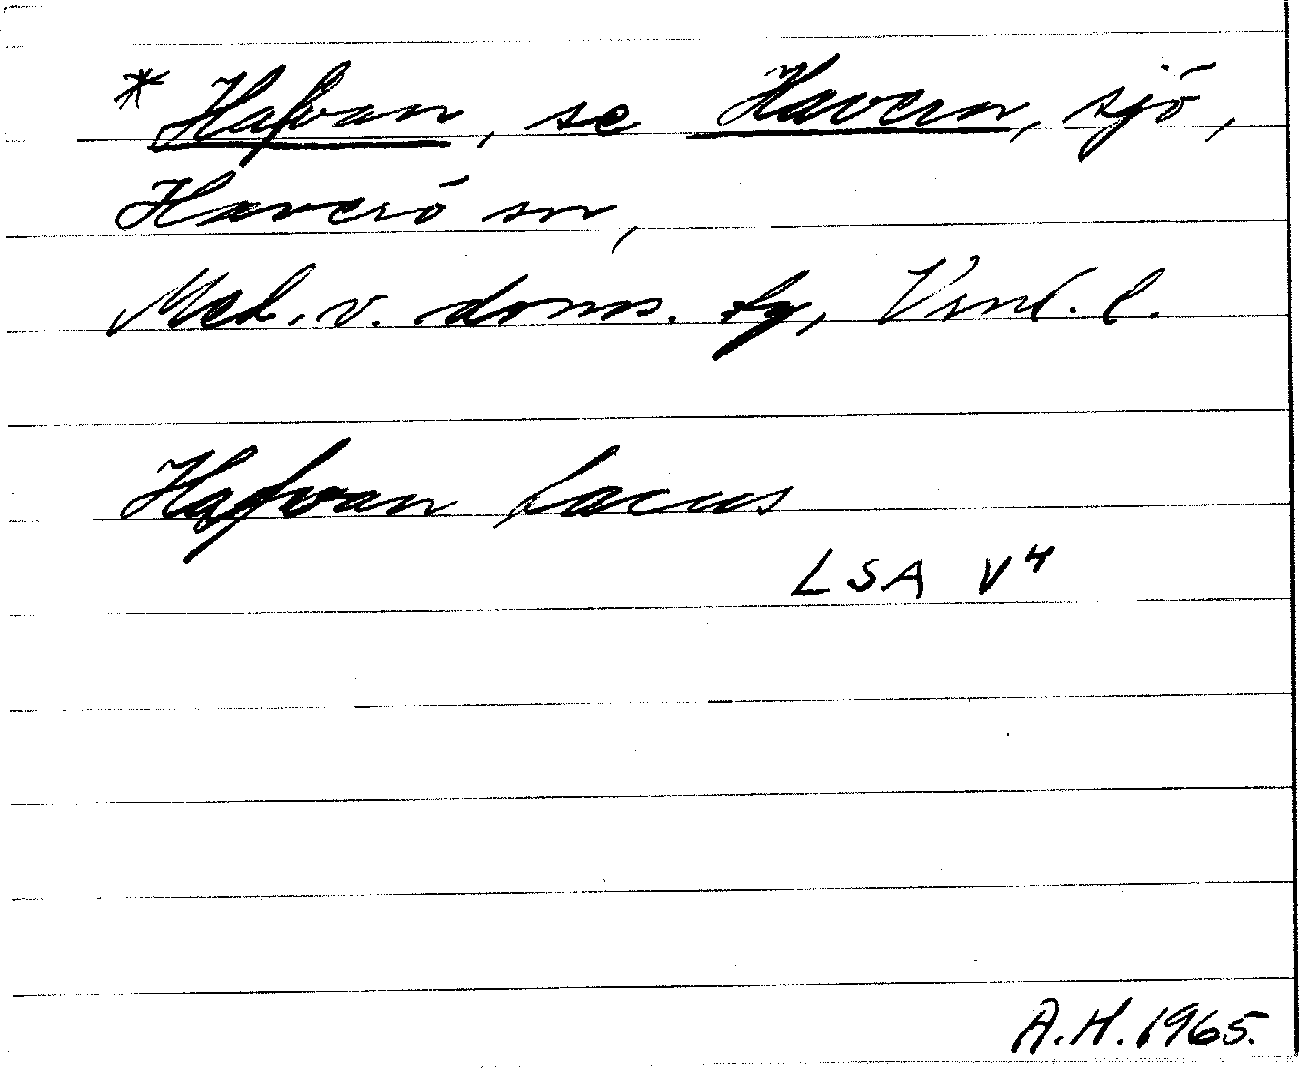 * Hafvan, se Havern, sjö,
Haverö sn,
Med. v. doms. tg, Vrnl. l.
Hafwan lacus
LSA V4
A.H. 1965.